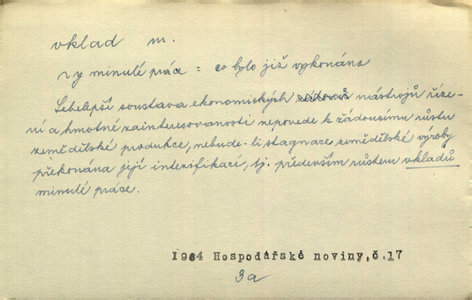 vklad m.
~y minulé práce = co bylo již vykonáno
Sebelepší soustava ekonomických nástrojů říze-
ní a hmotné zainteresovanosti nepovede k žádoucímu růstu
zemědělské produkce, nebude-li stagnace zemědělské výroby
překonána její intensifikací, tj. především růstem vkladů
minulé práce.
1964 Hospodářské noviny,č.17
3a